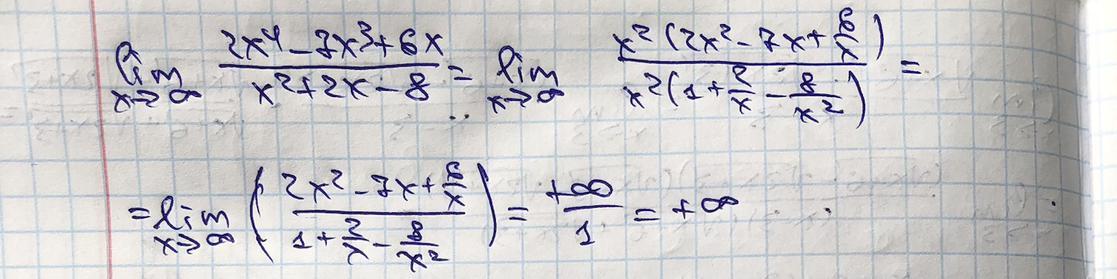 lim x→∞ (2x⁴ - 7x³ + 6x)/(x² + 2x - 8) = lim x→∞ (x²(2x² - 7x + 6/x))/(x²(1 + 2/x - 8/x²)) =
= lim x→∞ ((2x² - 7x + 6/x)/(1 + 2/x - 8/x²)) = +∞/1 = +∞